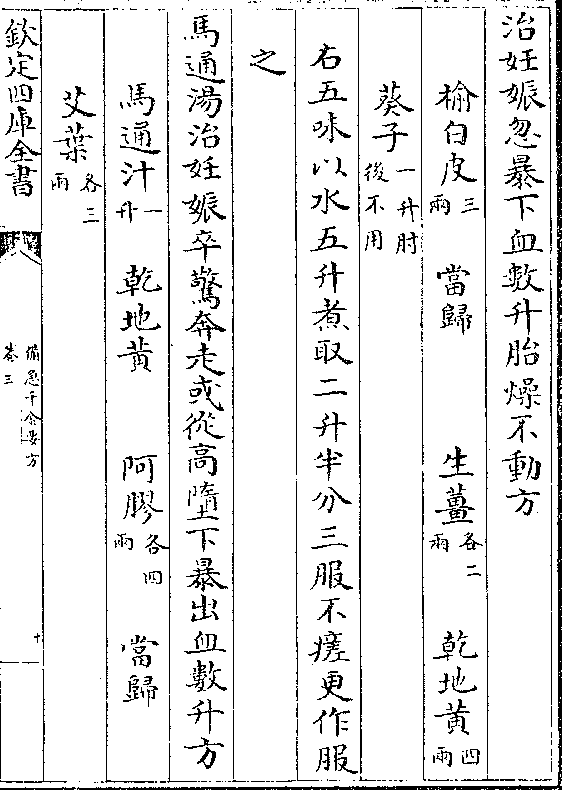 治妊娠忽暴下血數升胎燥不動方
榆白皮三兩 當歸 生薑各二兩 乾地黃四兩
葵子一升肘後不用
右五味以水五升煮取二升半分三服不瘥更作服
之
馬通湯治妊娠卒驚奔走或從高墮下暴出血數升方
馬通汁一升 乾地黃 阿膠各四兩 當歸
艾葉各三兩
欽定四庫全書
備急千金要方
卷三
十